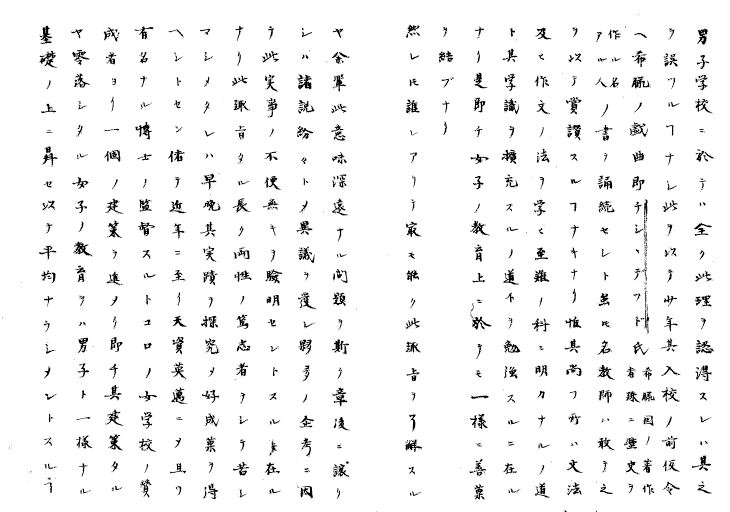 男子学校ニ於テハ全ク此理ヲ認得スレハ其之
ヲ誤ツルヿナシ此ヲ以テ少年其入校ノ前仮令
ヘ希臘ノ戯曲即チシ、デフド氏希臘国ノ著作
者殊ニ歴史ヲ
作ル名
アル人ノ書ヲ誦読セント虽𪜈名教師ハ敢テ之
ヲ以テ賞讃スルヿナキナリ惟其尚フ所ハ文法
及ヒ作文ノ法ヲ学ヒ至難ノ科ニ明カナルノ道
ト其学識ヲ擴充スルノ道トヲ勉強スルニ在ル
ナリ是即チ女子ノ教育上ニ於テモ一様ニ善菓
ヲ結ブナリ
然レ𪜈誰レアリテ最モ能ク此諏旨ヲ了解スル
ヤ余輩此意味深遠ナル問題ヲ斯ノ章後ニ譲リ
シハ諸説紛々トメ異議ヲ覆レ夥多ノ企考ニ因
テ此実事ノ不便無キヲ験明セントスルニ在ル
ナリ此諏旨タル長ク両性ノ篤志者ヲシテ苦シ
マシメタレハ早晩其実蹟ヲ探究メ好成菓ヲ得
ヘシトセン偖テ近年ニ至リ天資英邁ニメ且ツ
有名ナル博士ノ監督スルトコロノ女学校ノ賛
成者ヨリ一個ノ建築ヲ進メリ即チ其建築タル
ヤ零落シタル女子ノ教育ヲハ男子ト一様ナル
基礎ノ上ニ昇セ以テ平均ナラシメントスルヿ